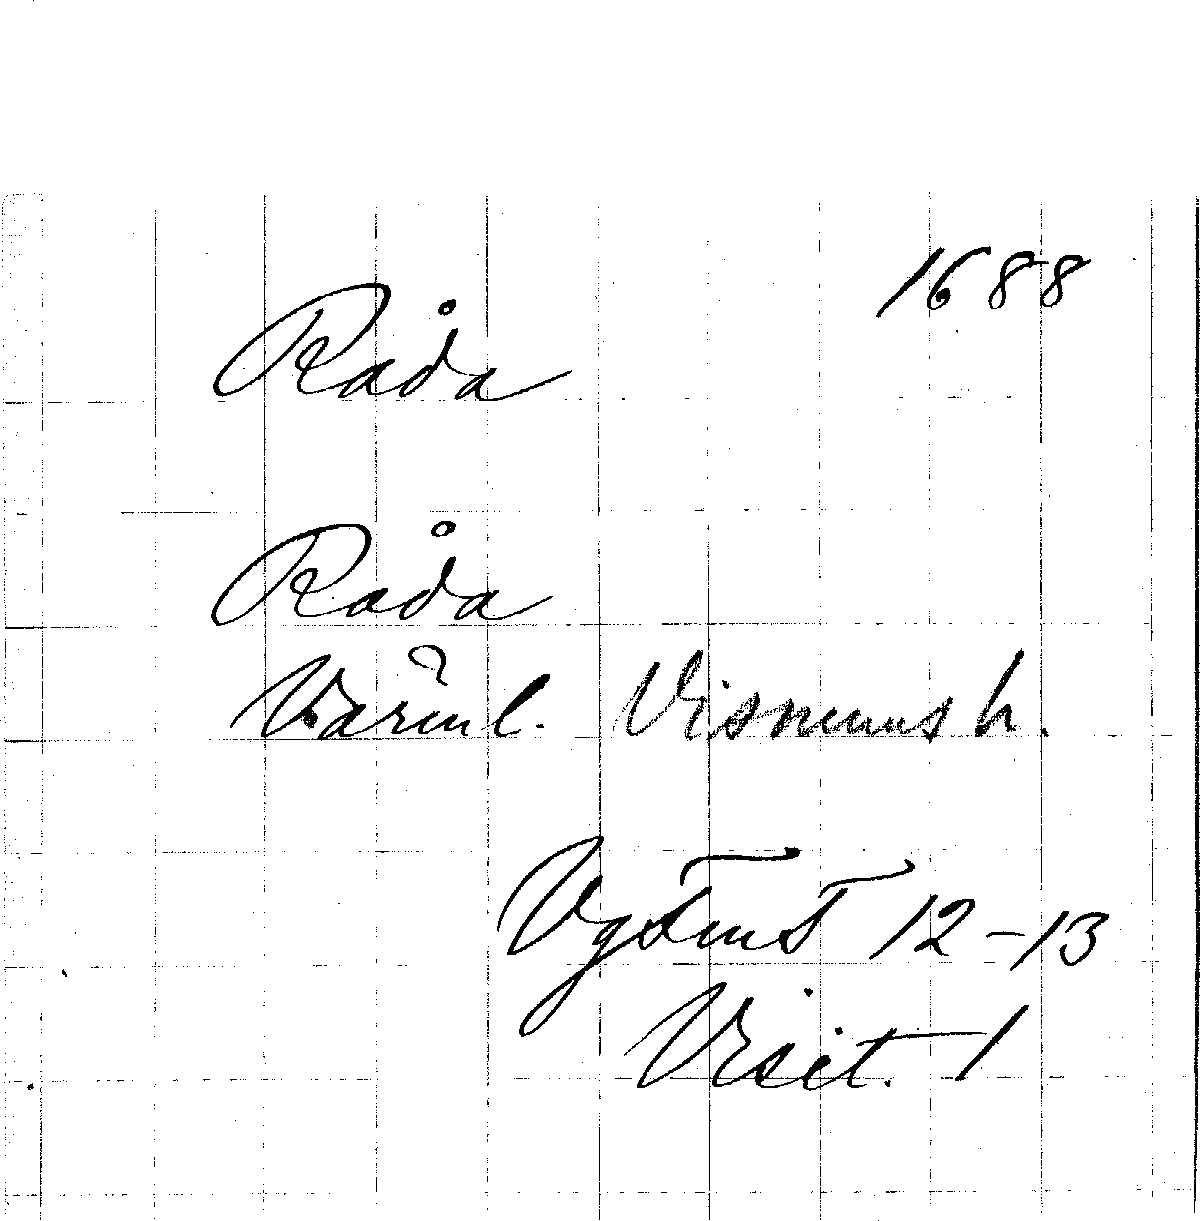 1688
Råda
Råda
Värml. Visnums h.
12-13
Visit. 1